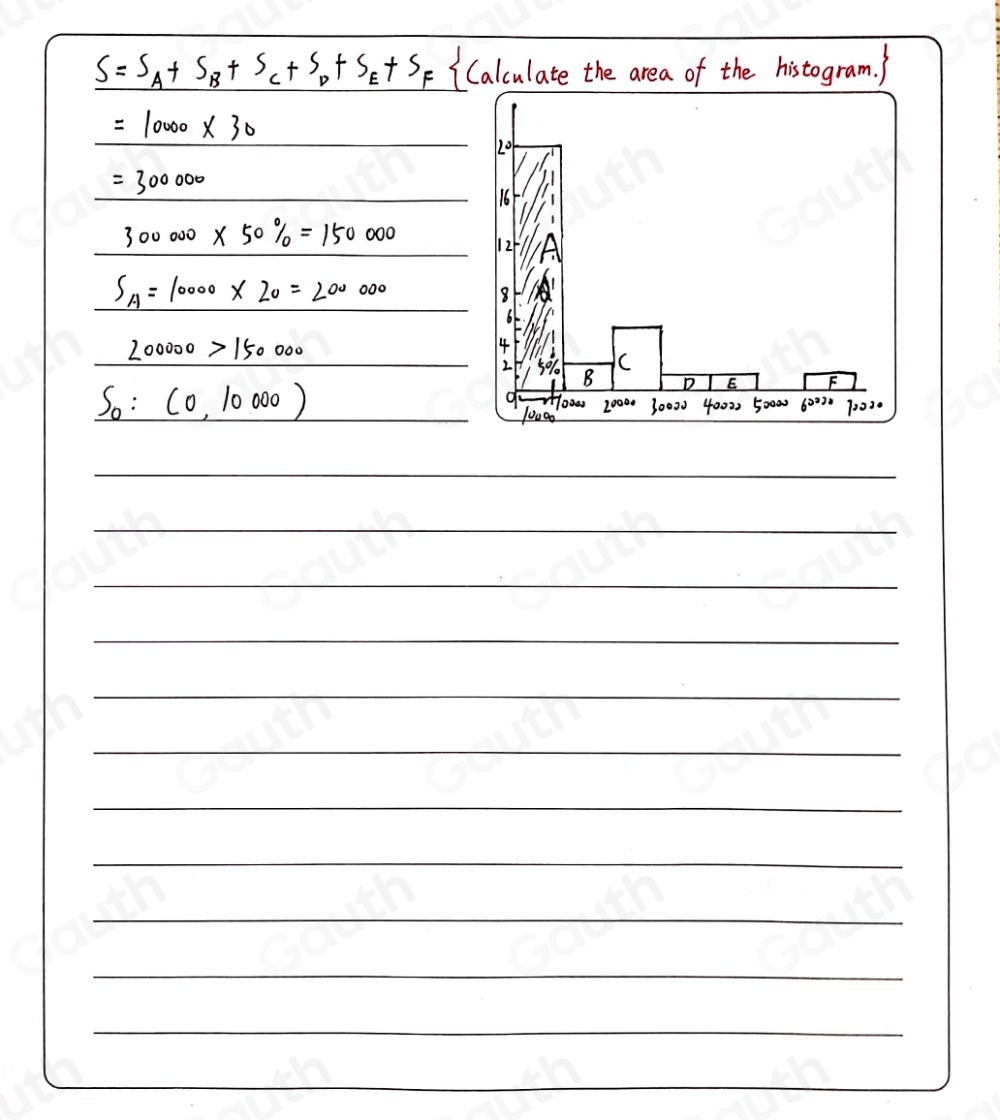 S = S_A + S_B + S_C + S_D + S_E + S_F {Calculate the area of the histogram.}
= 10000 × 30
= 300 000
300 000 × 50% = 150 000
S_A = 10000 × 20 = 200 000
200000 > 150 000
So: (0, 10 000)
20
16
12
8
6
4
2
0
A
50%
B
C
D
E
F
10000 20000 30000 40000 50000 60000 70000
10000
Gauth